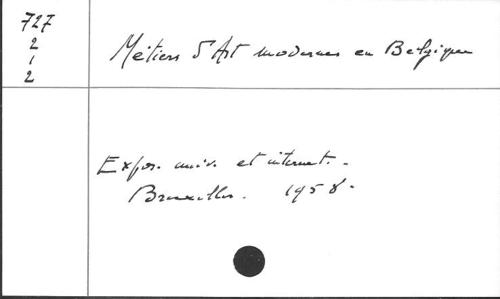 727
2
1
2
Métiers d'Art modernes en Belgique
Expos. univ. et internat.
Bruxelles. 1958.